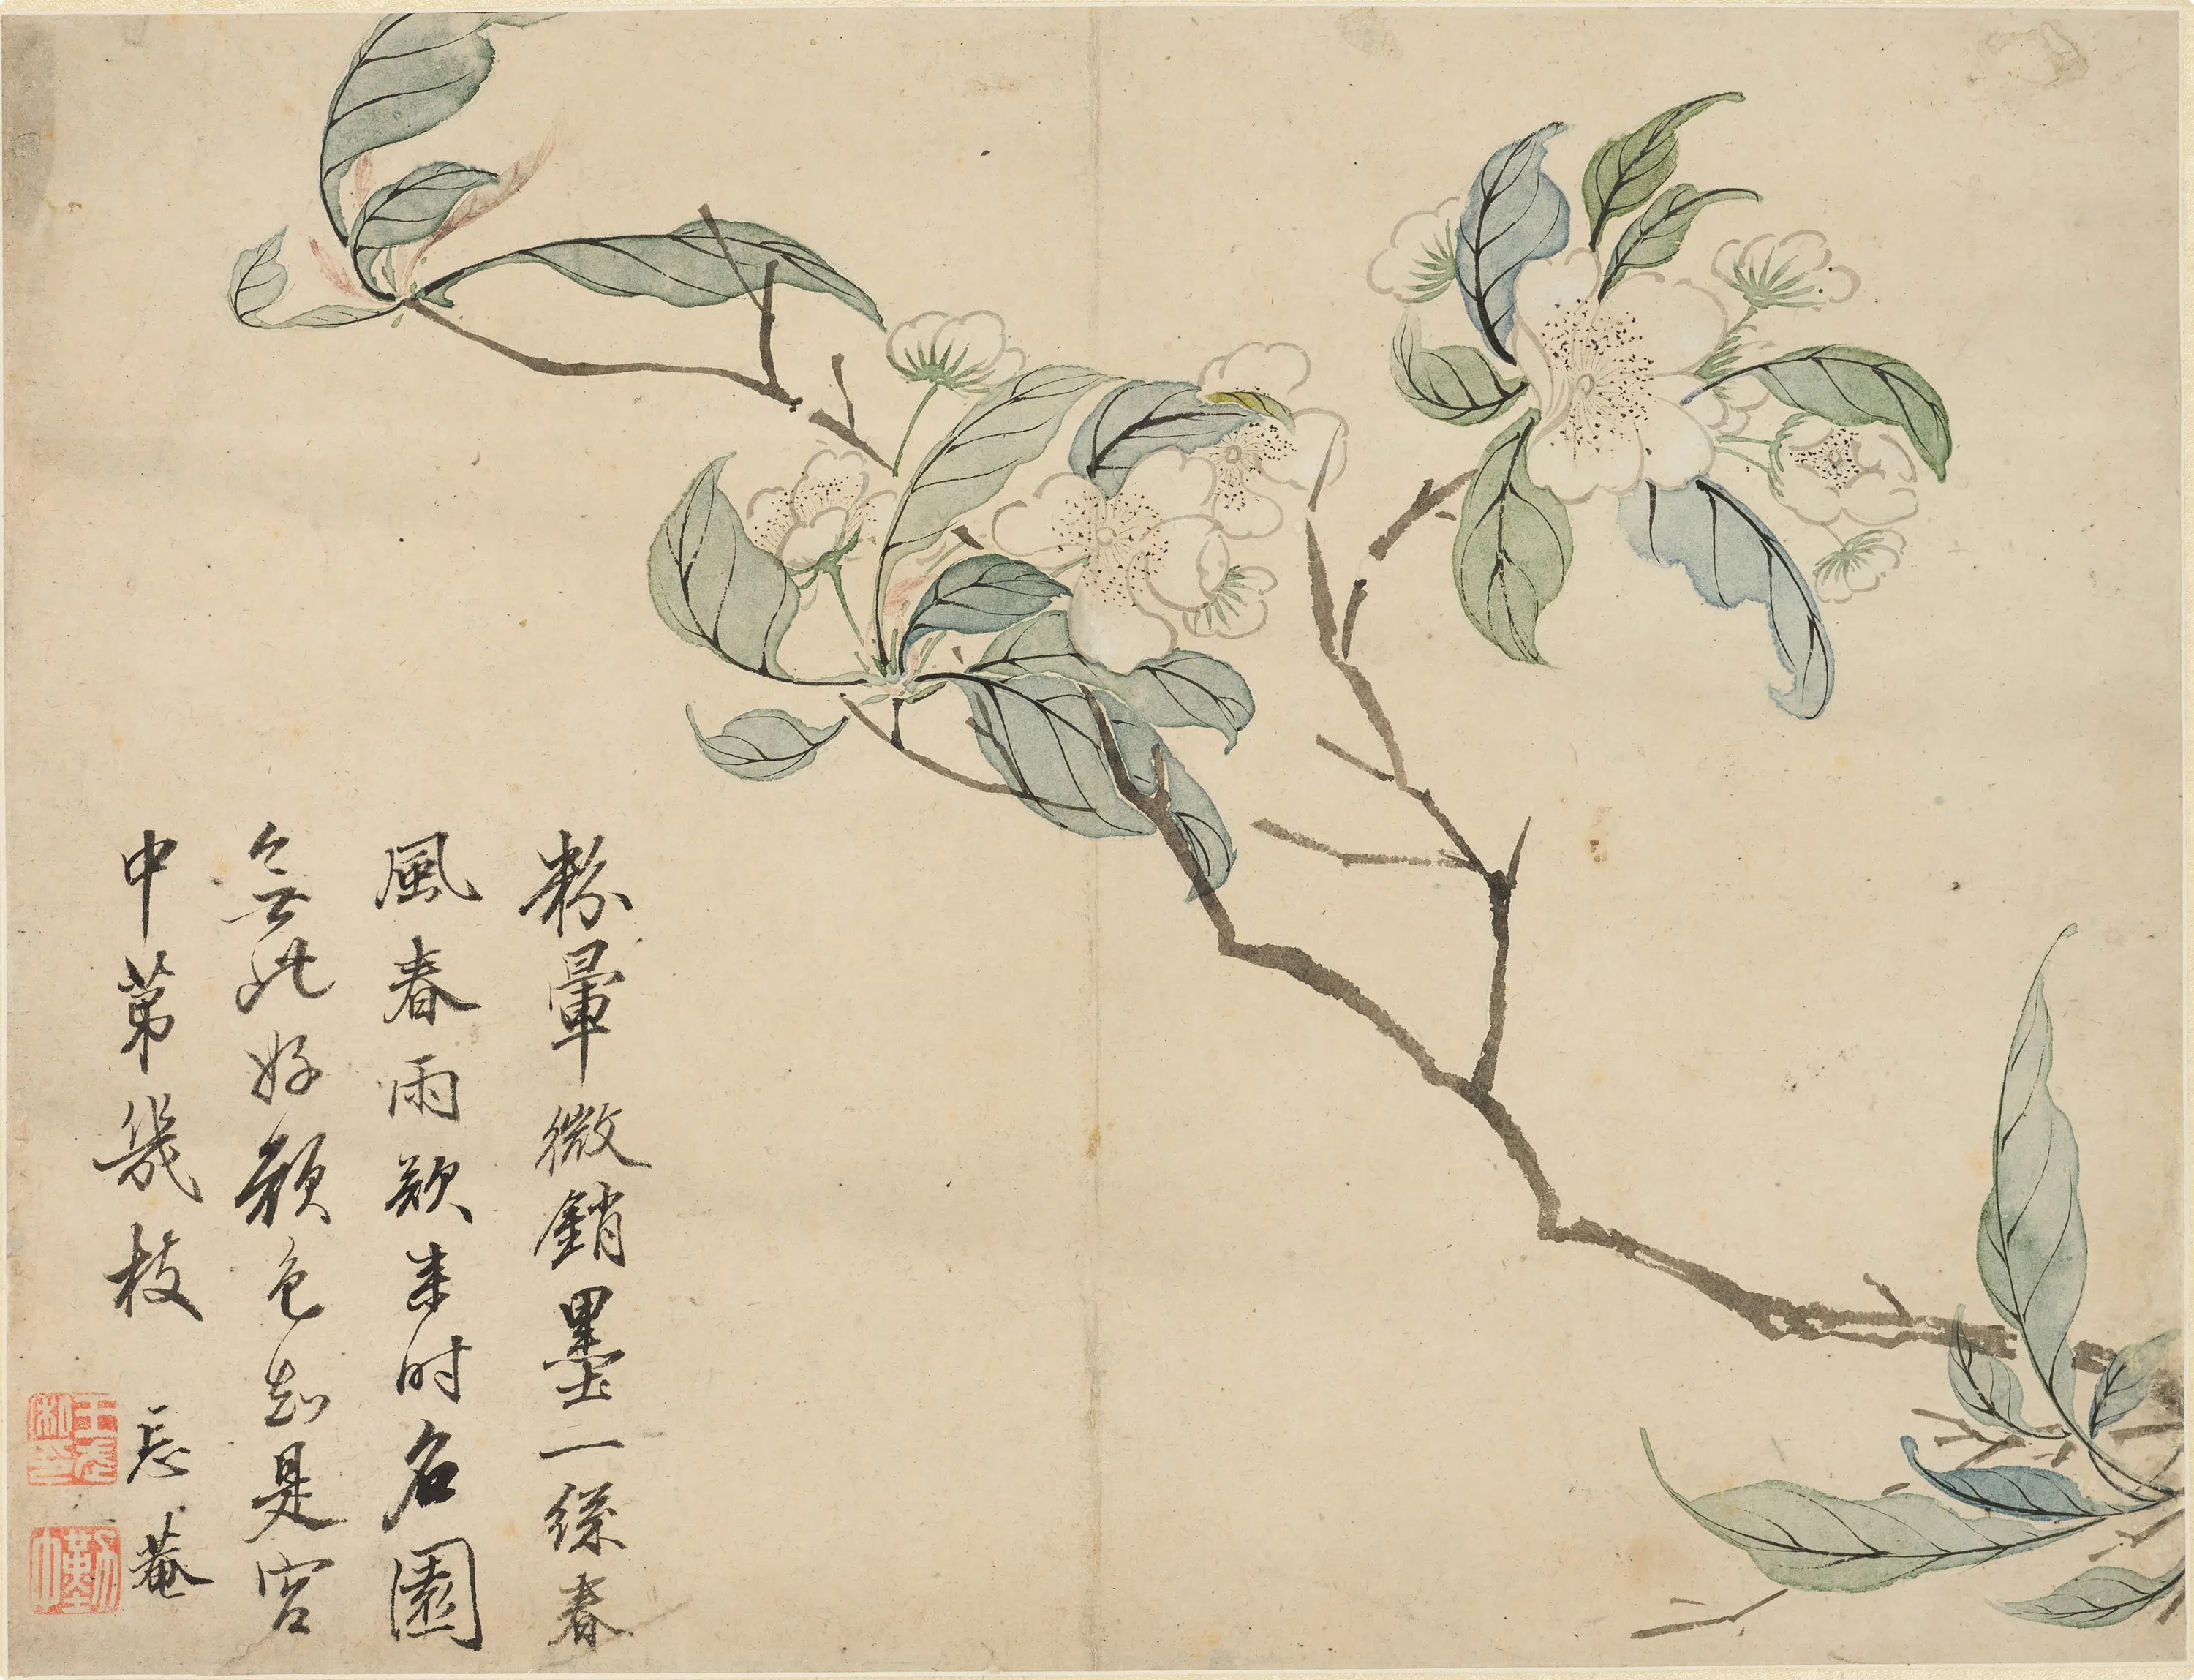 粉暈微銷墨一絲春
風春雨欲来时名園
無此好顏色知是宮
中第幾枝
忘菴